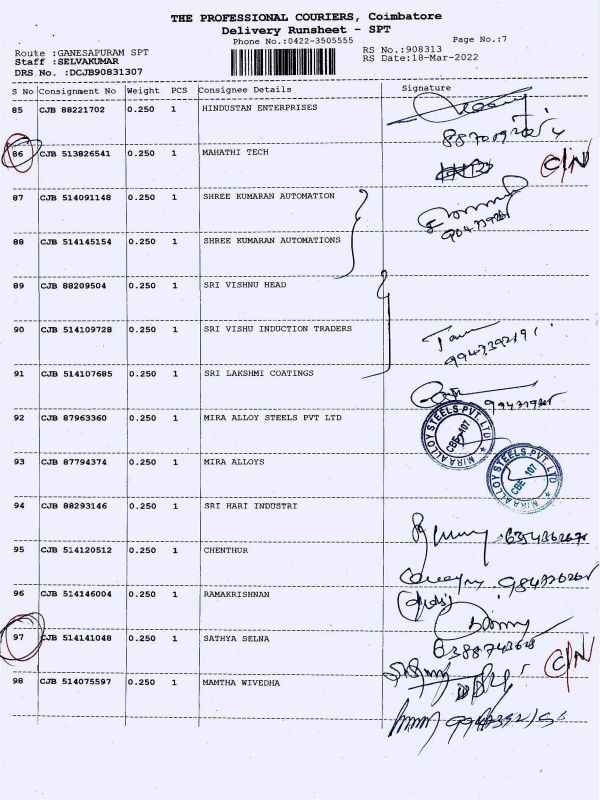 THE PROFESSIONAL COURIERS, Coimbatore
Delivery Runsheet - SPT
Phone No.:0422-3505555 Page No.:7
Route :GANESAPURAM SPT RS No.:908313
Staff :SELVAKUMAR RS Date:18-Mar-2022
DRS No. :DCJB90831307
S No Consignment No Weight PCS Consignee Details Signature
85 CJB 88221702 0.250 1 HINDUSTAN ENTERPRISES
86 CJB 513826541 0.250 1 MAHATHI TECH C/N
87 CJB 514091148 0.250 1 SHREE KUMARAN AUTOMATION
88 CJB 514145154 0.250 1 SHREE KUMARAN AUTOMATIONS
89 CJB 88209504 0.250 1 SRI VISHNU HEAD
90 CJB 514109728 0.250 1 SRI VISHU INDUCTION TRADERS
91 CJB 514107685 0.250 1 SRI LAKSHMI COATINGS
92 CJB 87963360 0.250 1 MIRA ALLOY STEELS PVT LTD
MIRA ALLOY STEELS PVT. LTD
CBE-107
93 CJB 87794374 0.250 1 MIRA ALLOYS
MIRA ALLOY STEELS PVT. LTD
CBE 107
94 CJB 88293146 0.250 1 SRI HARI INDUSTRI
95 CJB 514120512 0.250 1 CHENTHUR
96 CJB 514146004 0.250 1 RAMAKRISHNAN
97 CJB 514141048 0.250 1 SATHYA SELNA C/N
98 CJB 514075597 0.250 1 MAMTHA WIVEDHA